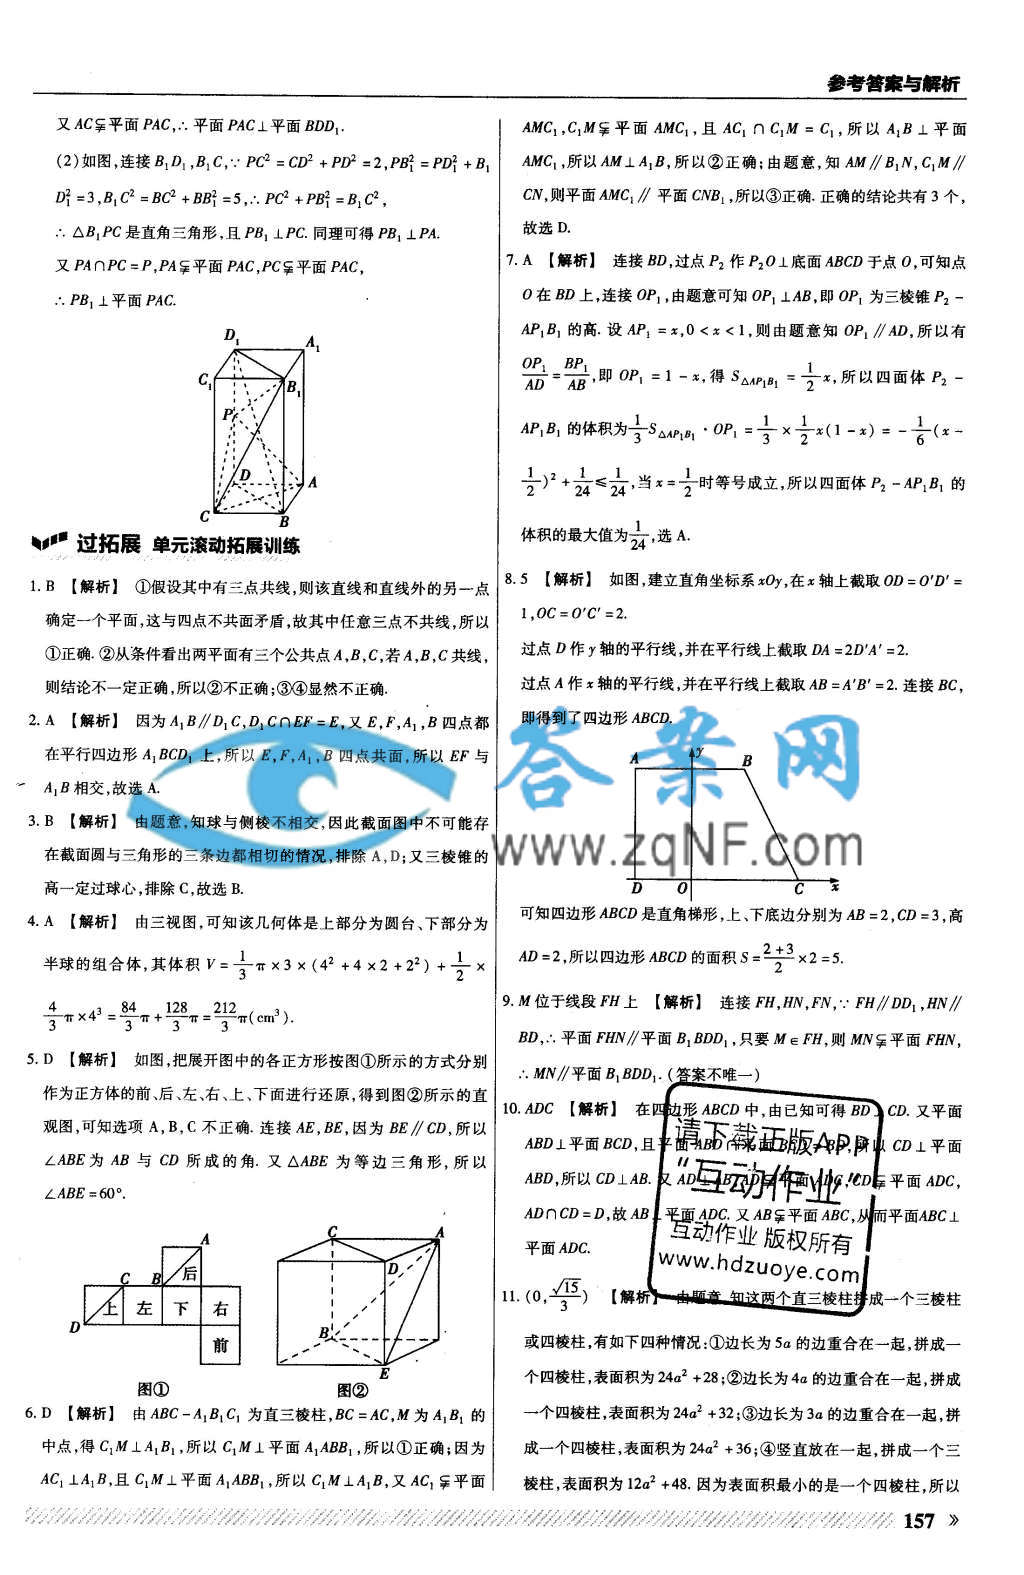 参考答案与解析
又 AC⫋平面 PAC,∴ 平面 PAC⊥平面 BDD₁.
(2)如图,连接 B₁D₁,B₁C,∵ PC² = CD² + PD² = 2,PB₁² = PD₁² + B₁
D₁² = 3,B₁C² = BC² + BB₁² = 5,∴ PC² + PB₁² = B₁C²,
∴ △B₁PC 是直角三角形,且 PB₁⊥PC. 同理可得 PB₁⊥PA.
又 PA∩PC = P,PA⫋平面 PAC,PC⫋平面 PAC,
∴ PB₁⊥平面 PAC.
D₁
A₁
C₁
B₁
P
D
A
C
B
过拓展 单元滚动拓展训练
1. B 【解析】 ①假设其中有三点共线,则该直线和直线外的另一点
确定一个平面,这与四点不共面矛盾,故其中任意三点不共线,所以
①正确. ②从条件看出两平面有三个公共点 A,B,C,若 A,B,C 共线,
则结论不一定正确,所以②不正确;③④显然不正确.
2. A 【解析】 因为 A₁B∥D₁C,D₁C∩EF = E,又 E,F,A₁,B 四点都
在平行四边形 A₁BCD₁ 上,所以 E,F,A₁,B 四点共面,所以 EF 与
A₁B 相交,故选 A.
3. B 【解析】 由题意,知球与侧棱不相交,因此截面图中不可能存
在截面圆与三角形的三条边都相切的情况,排除 A,D;又三棱锥的
高一定过球心,排除 C,故选 B.
4. A 【解析】 由三视图,可知该几何体是上部分为圆台、下部分为
半球的组合体,其体积 V = 1/3 π × 3 × (4² + 4 × 2 + 2²) + 1/2 ×
4/3 π × 4³ = 84/3 π + 128/3 π = 212/3 π(cm³).
5. D 【解析】 如图,把展开图中的各正方形按图①所示的方式分别
作为正方体的前、后、左、右、上、下面进行还原,得到图②所示的直
观图,可知选项 A,B,C 不正确. 连接 AE,BE,因为 BE∥CD,所以
∠ABE 为 AB 与 CD 所成的角. 又 △ABE 为等边三角形,所以
∠ABE = 60°.
A
C B 后
上 左 下 右
D
前
图①
C
A
D
B
E
图②
6. D 【解析】 由 ABC - A₁B₁C₁ 为直三棱柱,BC = AC,M 为 A₁B₁ 的
中点,得 C₁M⊥A₁B₁,所以 C₁M⊥平面 A₁ABB₁,所以①正确;因为
AC₁⊥A₁B,且 C₁M⊥平面 A₁ABB₁,所以 C₁M⊥A₁B,又 AC₁⫋平面
AMC₁,C₁M⫋平面 AMC₁,且 AC₁∩C₁M = C₁,所以 A₁B⊥平面
AMC₁,所以 AM⊥A₁B,所以②正确;由题意,知 AM∥B₁N,C₁M∥
CN,则平面 AMC₁∥ 平面 CNB₁,所以③正确. 正确的结论共有 3 个,
故选 D.
7. A 【解析】 连接 BD,过点 P₂ 作 P₂O⊥底面 ABCD 于点 O,可知点
O 在 BD 上,连接 OP₁,由题意可知 OP₁⊥AB,即 OP₁ 为三棱锥 P₂ -
AP₁B₁ 的高. 设 AP₁ = x,0 < x < 1,则由题意知 OP₁∥AD,所以有
OP₁/AD = BP₁/AB,即 OP₁ = 1 - x,得 S△AP₁B₁ = 1/2 x,所以四面体 P₂ -
AP₁B₁ 的体积为 1/3 S△AP₁B₁ · OP₁ = 1/3 × 1/2 x(1 - x) = - 1/6 (x -
1/2)² + 1/24 ≤ 1/24,当 x = 1/2 时等号成立,所以四面体 P₂ - AP₁B₁ 的
体积的最大值为 1/24,选 A.
8. 5 【解析】 如图,建立直角坐标系 xOy,在 x 轴上截取 OD = O′D′ =
1,OC = O′C′ = 2.
过点 D 作 y 轴的平行线,并在平行线上截取 DA = 2D′A′ = 2.
过点 A 作 x 轴的平行线,并在平行线上截取 AB = A′B′ = 2. 连接 BC,
即得到了四边形 ABCD.
答案网
www.zqNF.com
A
y
B
D
O
C
x
可知四边形 ABCD 是直角梯形,上、下底边分别为 AB = 2,CD = 3,高
AD = 2,所以四边形 ABCD 的面积 S = (2+3)/2 × 2 = 5.
9. M 位于线段 FH 上 【解析】 连接 FH,HN,FN,∵ FH∥DD₁,HN∥
BD,∴ 平面 FHN∥平面 B₁BDD₁,只要 M∈FH,则 MN⫋平面 FHN,
∴ MN∥平面 B₁BDD₁.(答案不唯一)
10. ADC 【解析】 在四边形 ABCD 中,由已知可得 BD⊥CD. 又平面
ABD⊥平面 BCD,且平面 ABD∩平面 BCD = BD,所以 CD⊥平面
ABD,所以 CD⊥AB. 又 AD⊥AB,AD⫋平面 ADC,CD⫋平面 ADC,
AD∩CD = D,故 AB⊥平面 ADC. 又 AB⫋平面 ABC,从而平面ABC⊥
平面 ADC.
请下载正版APP
“互动作业”
互动作业 版权所有
www.hdzuoye.com
11. (0, √15/3) 【解析】 由题意,知这两个直三棱柱拼成一个三棱柱
或四棱柱,有如下四种情况:①边长为 5a 的边重合在一起,拼成一
个四棱柱,表面积为 24a² + 28;②边长为 4a 的边重合在一起,拼成
一个四棱柱,表面积为 24a² + 32;③边长为 3a 的边重合在一起,拼
成一个四棱柱,表面积为 24a² + 36;④竖直放在一起,拼成一个三
棱柱,表面积为 12a² + 48. 因为表面积最小的是一个四棱柱,所以
157 »